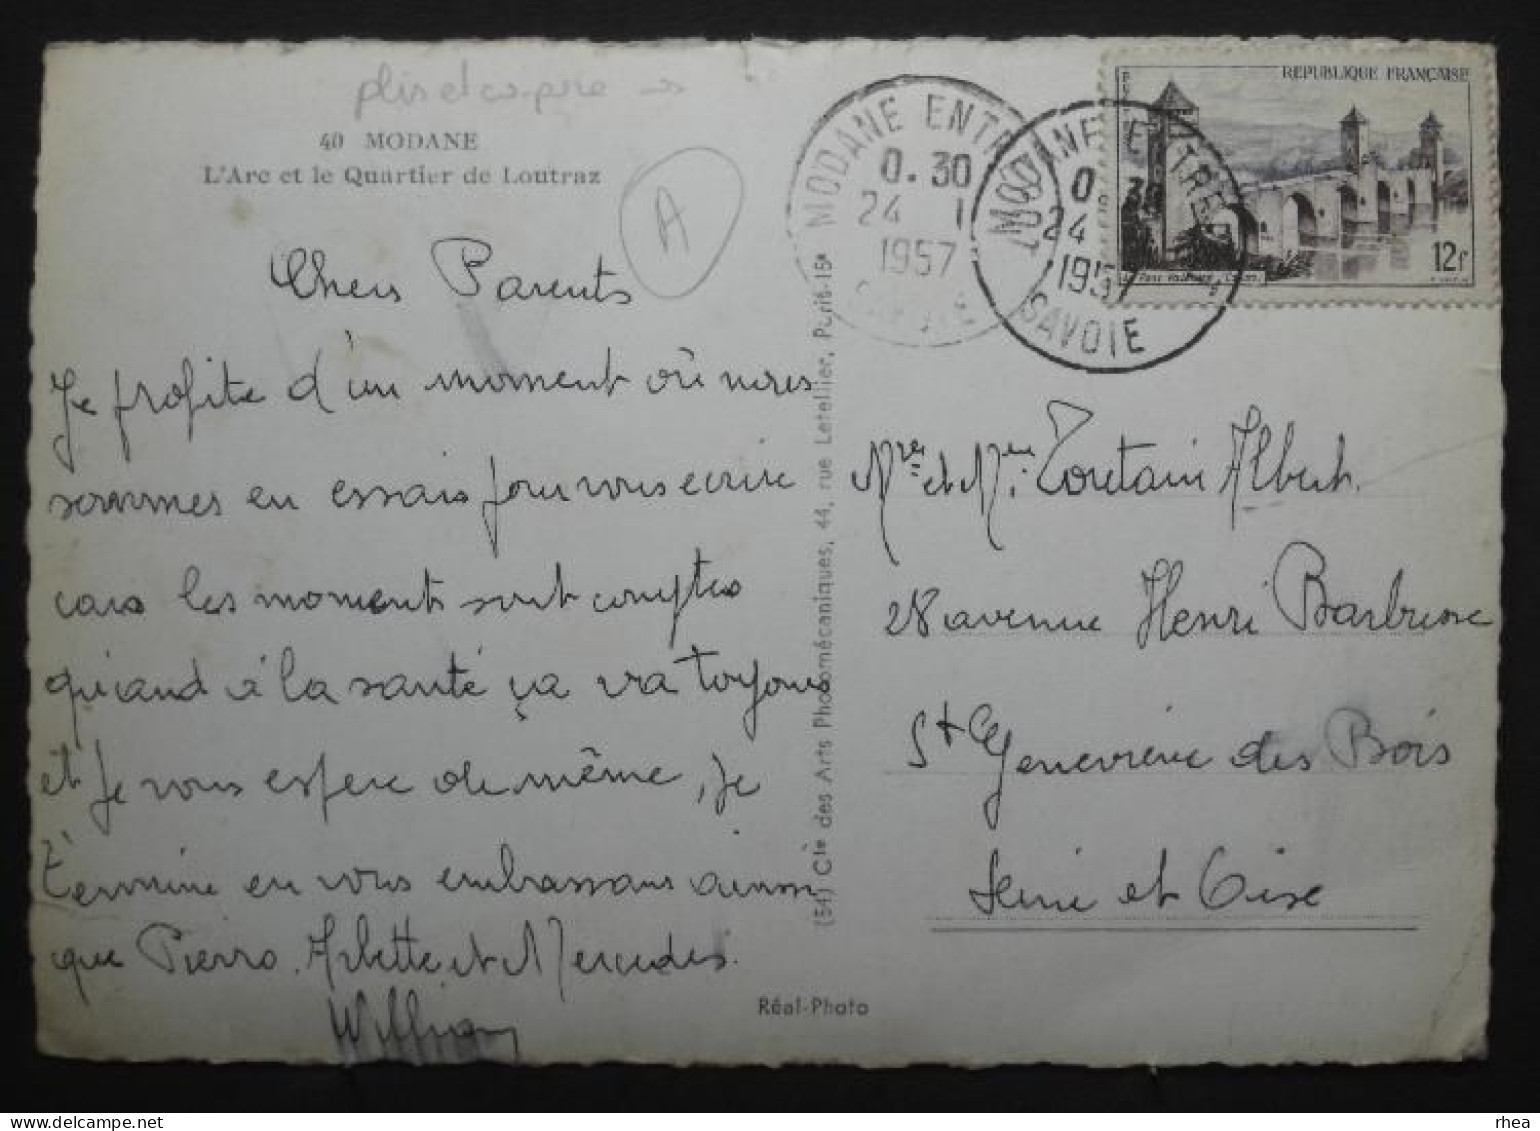 plis et coupure →
40 MODANE
L'Arc et le Quartier de Loutraz
A
Chers Parents
Je profite d'un moment où nous
sommes en essais pour vous ecrire
cars les moments sont comptes
quand à la santé ça va toujours
et je vous espere de même, je
termine en vous embrassans ainsi
que Pierro, Arlette et Mercedes.
William
(54) Cie des Arts Photomécaniques, 44, rue Letellier, Paris-15e
Réal-Photo
MODANE ENTREPOT
0.30
24 - 1
1957
SAVOIE
MODANE ENTREPOT
0.30
24
1957
SAVOIE
REPUBLIQUE FRANÇAISE
12f
Mr et Me Toutain Albert.
28 avenue Henri Barbusse
St Genevieve des Bois
Seine et Oise
rhea